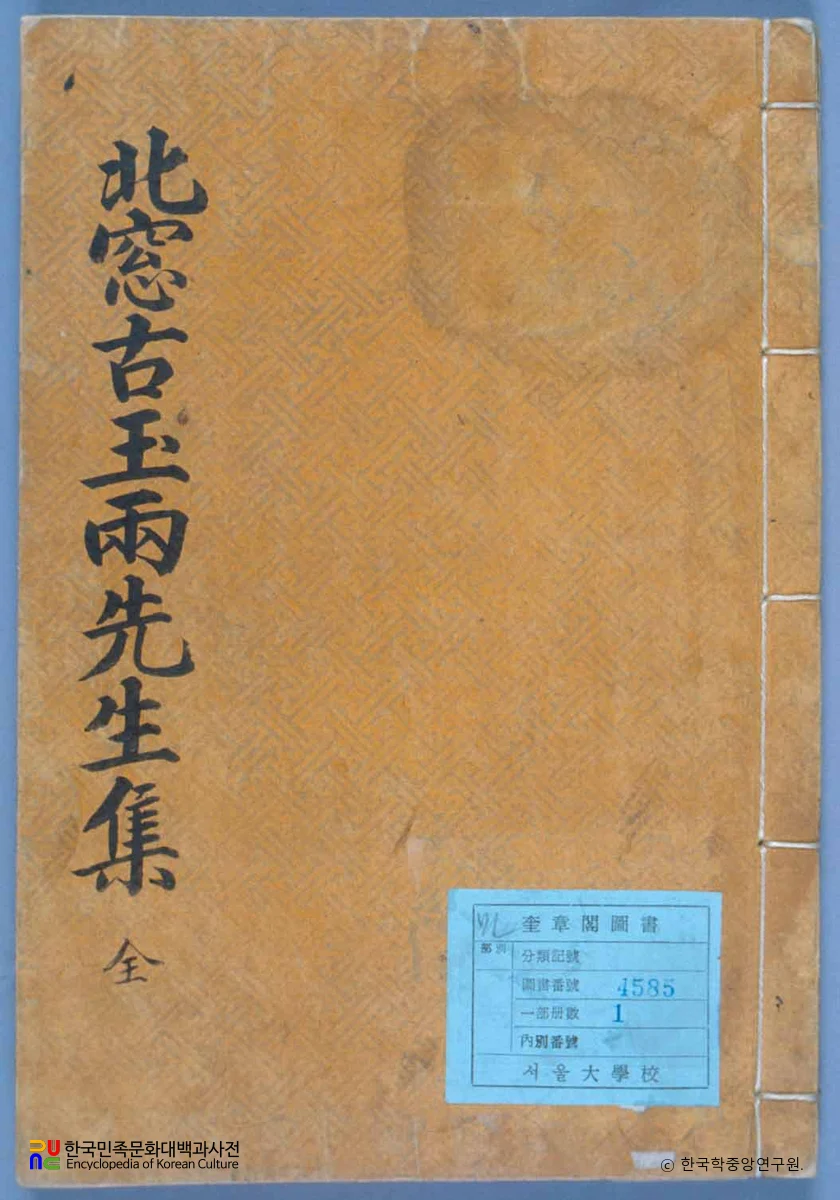 北窓古玉兩先生集 全
奎章閣圖書
部別
分類記號
圖書番號 4585
一部册數 1
內別番號
서울大學校
한국민족문화대백과사전
Encyclopedia of Korean Culture
© 한국학중앙연구원.